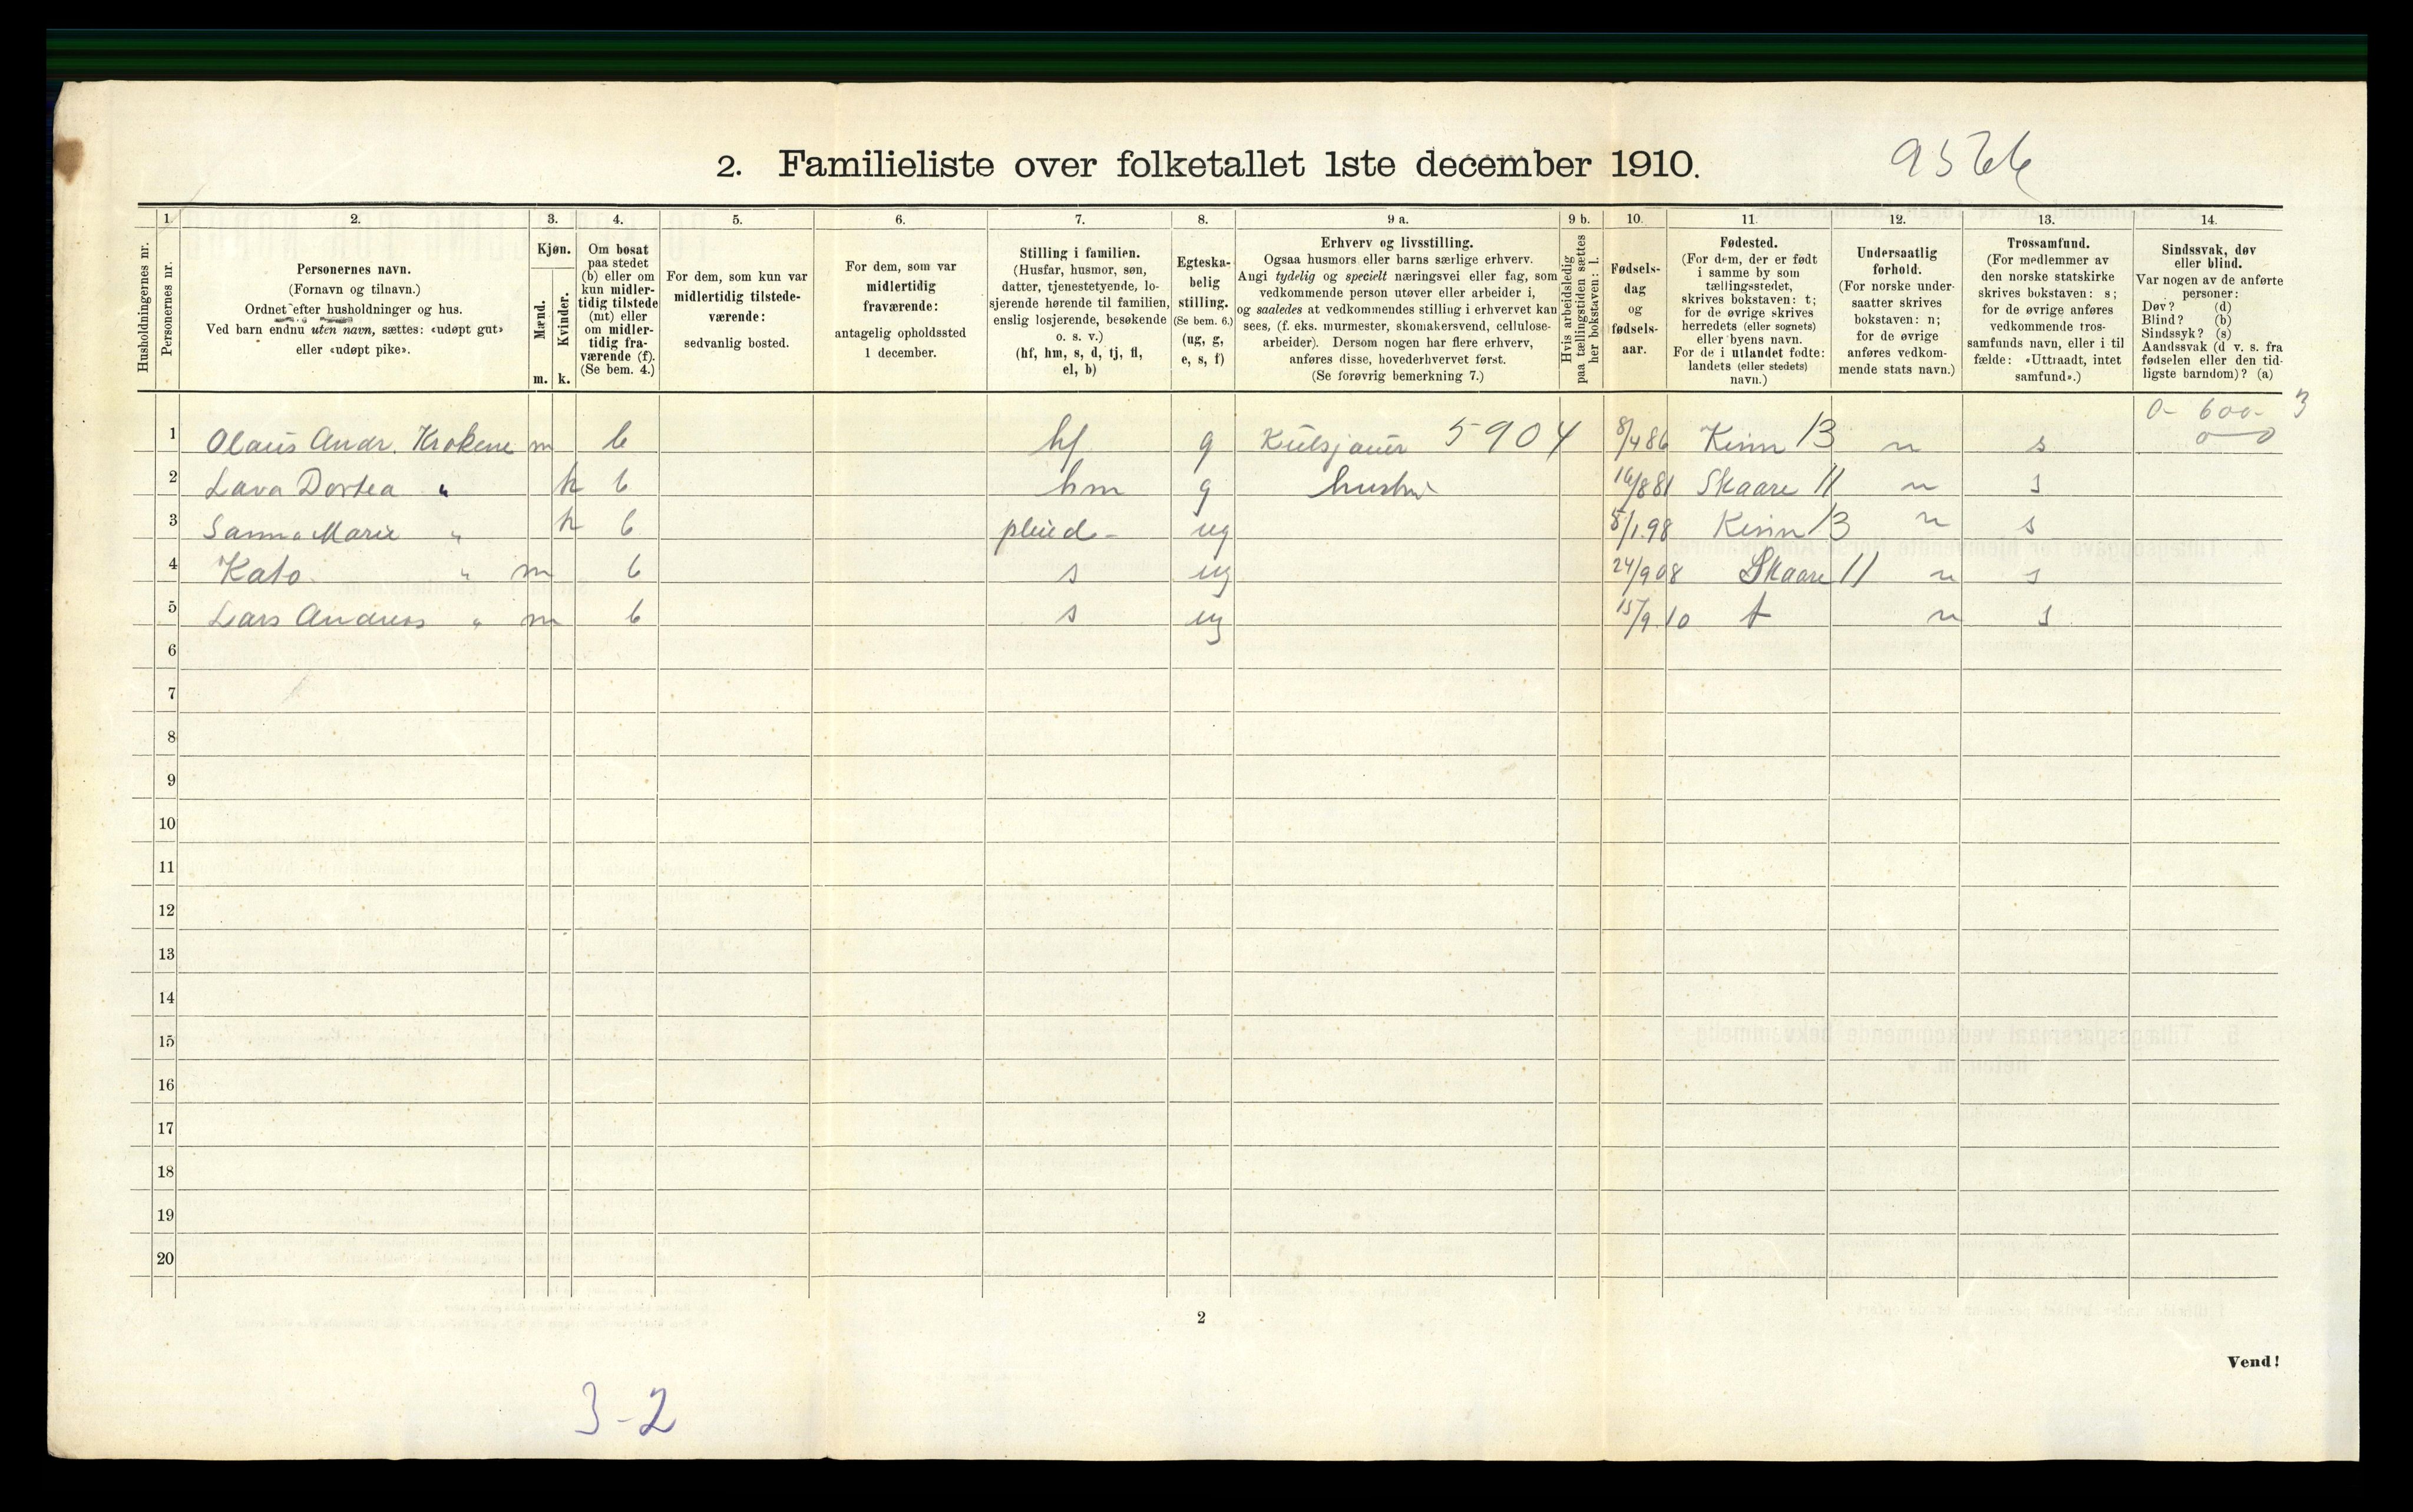 2. Familieliste over folketallet 1ste december 1910.
1. 2. 3. 4. 5. 6. 7. 8. 9 a. 9 b. 10. 11. 12. 13. 14.
Husholdningernes nr.
Personernes nr.
Personernes navn.
(Fornavn og tilnavn.)
Ordnet efter husholdninger og hus.
Ved barn endnu uten navn, sættes: «udøpt gut»
eller «udøpt pike».
Kjøn.
Mænd.
Kvinder.
m. k.
Om bosat
paa stedet
(b) eller om
kun midler-
tidig tilstede
(mt) eller
om midler-
tidig fra-
værende (f).
(Se bem. 4.)
For dem, som kun var
midlertidig tilstede-
værende:
sedvanlig bosted.
For dem, som var
midlertidig
fraværende:
antagelig opholdssted
1 december.
Stilling i familien.
(Husfar, husmor, søn,
datter, tjenestetyende, lo-
sjerende hørende til familien,
enslig losjerende, besøkende
o. s. v.)
(hf, hm, s, d, tj, fl,
el, b)
Egteska-
belig
stilling.
(Se bem. 6.)
(ug, g,
e, s, f)
Erhverv og livsstilling.
Ogsaa husmors eller barns særlige erhverv.
Angi tydelig og specielt næringsvei eller fag, som
vedkommende person utøver eller arbeider i,
og saaledes at vedkommendes stilling i erhvervet kan
sees, (f. eks. murmester, skomakersvend, cellulose-
arbeider). Dersom nogen har flere erhverv,
anføres disse, hovederhvervet først.
(Se forøvrig bemerkning 7.)
Hvis arbeidsledig
paa tællingstiden sættes
her bokstaven: l.
Fødsels-
dag
og
fødsels-
aar.
Fødested.
(For dem, der er født
i samme by som
tællingsstedet,
skrives bokstaven: t;
for de øvrige skrives
herredets (eller sognets)
eller byens navn.
For de i utlandet fødte:
landets (eller stedets)
navn.)
Undersaatlig
forhold.
(For norske under-
saatter skrives
bokstaven: n;
for de øvrige
anføres vedkom-
mende stats navn.)
Trossamfund.
(For medlemmer av
den norske statskirke
skrives bokstaven: s;
for de øvrige anføres
vedkommende tros-
samfunds navn, eller i til
fælde: «Uttraadt, intet
samfund».)
Sindssvak, døv
eller blind.
Var nogen av de anførte
personer:
Døv? (d)
Blind? (b)
Sindssyk? (s)
Aandssvak (d v. s. fra
fødselen eller den tid-
ligste barndom)? (a)
0- 600- 3
1 Olaus Andr. Krokene m b hf g 5904 8/4 86 Kinn 13 n s 0 0
2 Lava Dortea " k b hm g 16/8 81 Skaare 11 n s
3 Sanna Marie " k b pleied- ug 5/1.98 Kinn 13 n s
4 Kato " m b s ug 24/9 08 Skaare 11 n s
5 Lars Andreas " m b s ug 15/9.10 t n s
6
7
8
9
10
11
12
13
14
15
16
17
18
19
20
2
Vend!
3-2